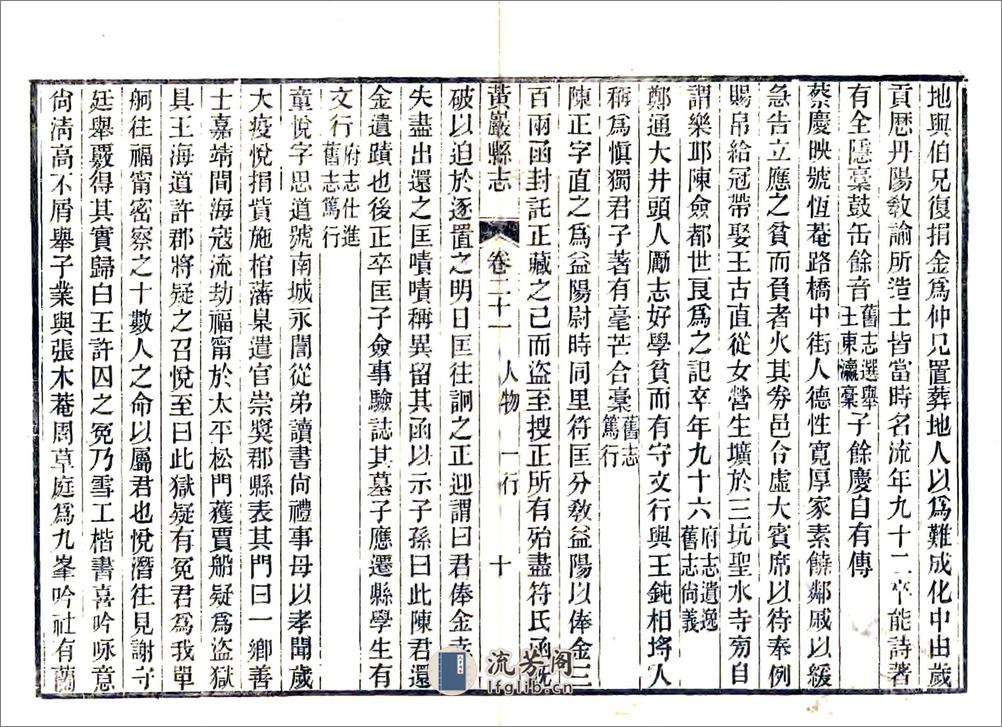 地與伯兄復捐金爲仲兄置葬地人以爲難成化中由歲
貢厯丹陽敎諭所造士皆當時名流年九十二卒能詩著
有全隱稾鼓缶餘音舊志選舉王東瀛稾子餘慶自有傳
蔡慶映號恆菴路橋中街人德性寬厚家素饒鄰戚以緩
急告立應之貧而負者火其劵邑令虛大賓席以待奉例
賜帛給冠帶娶王古直從女營生壙於三坑聖水寺旁自
謂樂邱陳僉都世良爲之記卒年九十六府志遺逸舊志尙義
鄭通大井頭人勵志好學貧而有守文行與王鈍相埓人
稱爲愼獨君子著有毫芒合稾舊志篤行
陳正字直之爲益陽尉時同里符匡分敎益陽以俸金三
百兩函封託正藏之已而盜至搜正所有殆盡符氏函旣
黃巖縣志 卷二十一 人物 一行 十
破以迫於逐置之明日匡往詗之正迎謂曰君俸金幸
失盡出還之匡嘖嘖稱異留其函以示子孫曰此陳君還
金遺蹟也後正卒匡子僉事驗誌其墓子應遷縣學生有
文行府志仕進舊志篤行
童悅字思道號南城永誾從弟讀書尙禮事母以孝聞歲
大疫悅捐貲施棺藩臬遣官崇奬郡縣表其門曰一鄉善
士嘉靖間海寇流劫福甯於太平松門獲賈船疑爲盜獄
具王海道許郡將疑之召悅至曰此獄疑有冤君爲我單
舸往福甯密察之十數人之命以屬君也悅潛往見謝守
廷舉覈得其實歸白王許囚之冤乃雪工楷書喜吟咏意
尙淸高不屑舉子業與張木菴周草庭爲九峯吟社有蘭
流芳閣
lfglib.cn